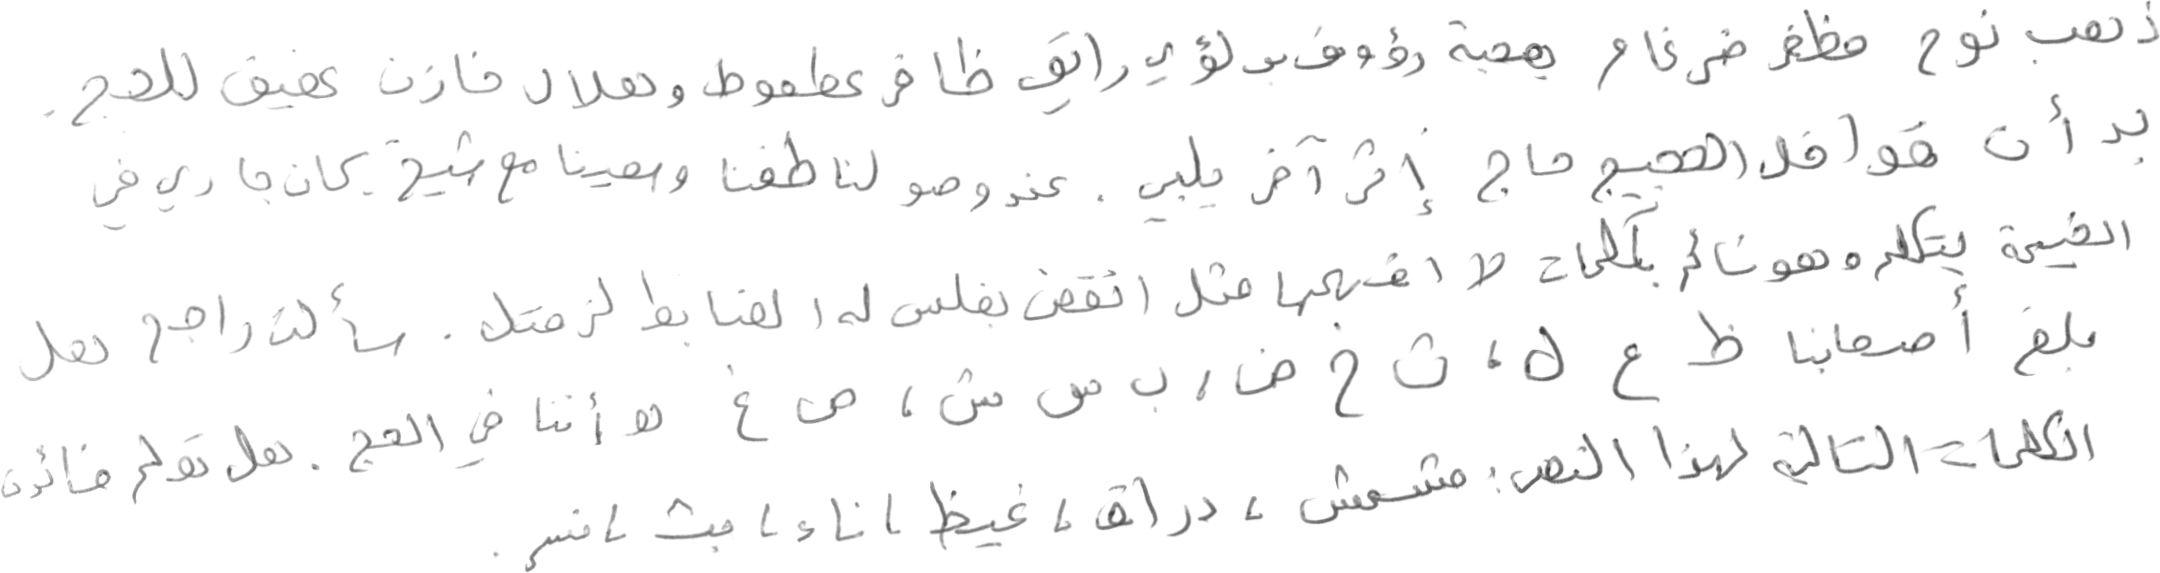 ذهب نوح مظفر ضرغام بصحبة رؤوف بو لؤي رائق ظافر عطعوط وهلال مازن عفيق للحج.
بدأت قوافل الحجيج حاج إثر آخر يلبي. عند وصولنا طفنا وسعينا مع شيخ. كان جاري في
الخيمة يتكلم وهو نائم بكلمات لا افهمها مثل انقض بفلس له الضابط لزمتك. سألت راجح هل
بلغ أصحابنا ظ ع ك، ث خ ض، ب س ش، ص غ لا أننا في الحج. هل تعلم فائدة
الكلمات التالية لهذا النص: مشمش، دراق، غيظ، ناء، بث، منسر.